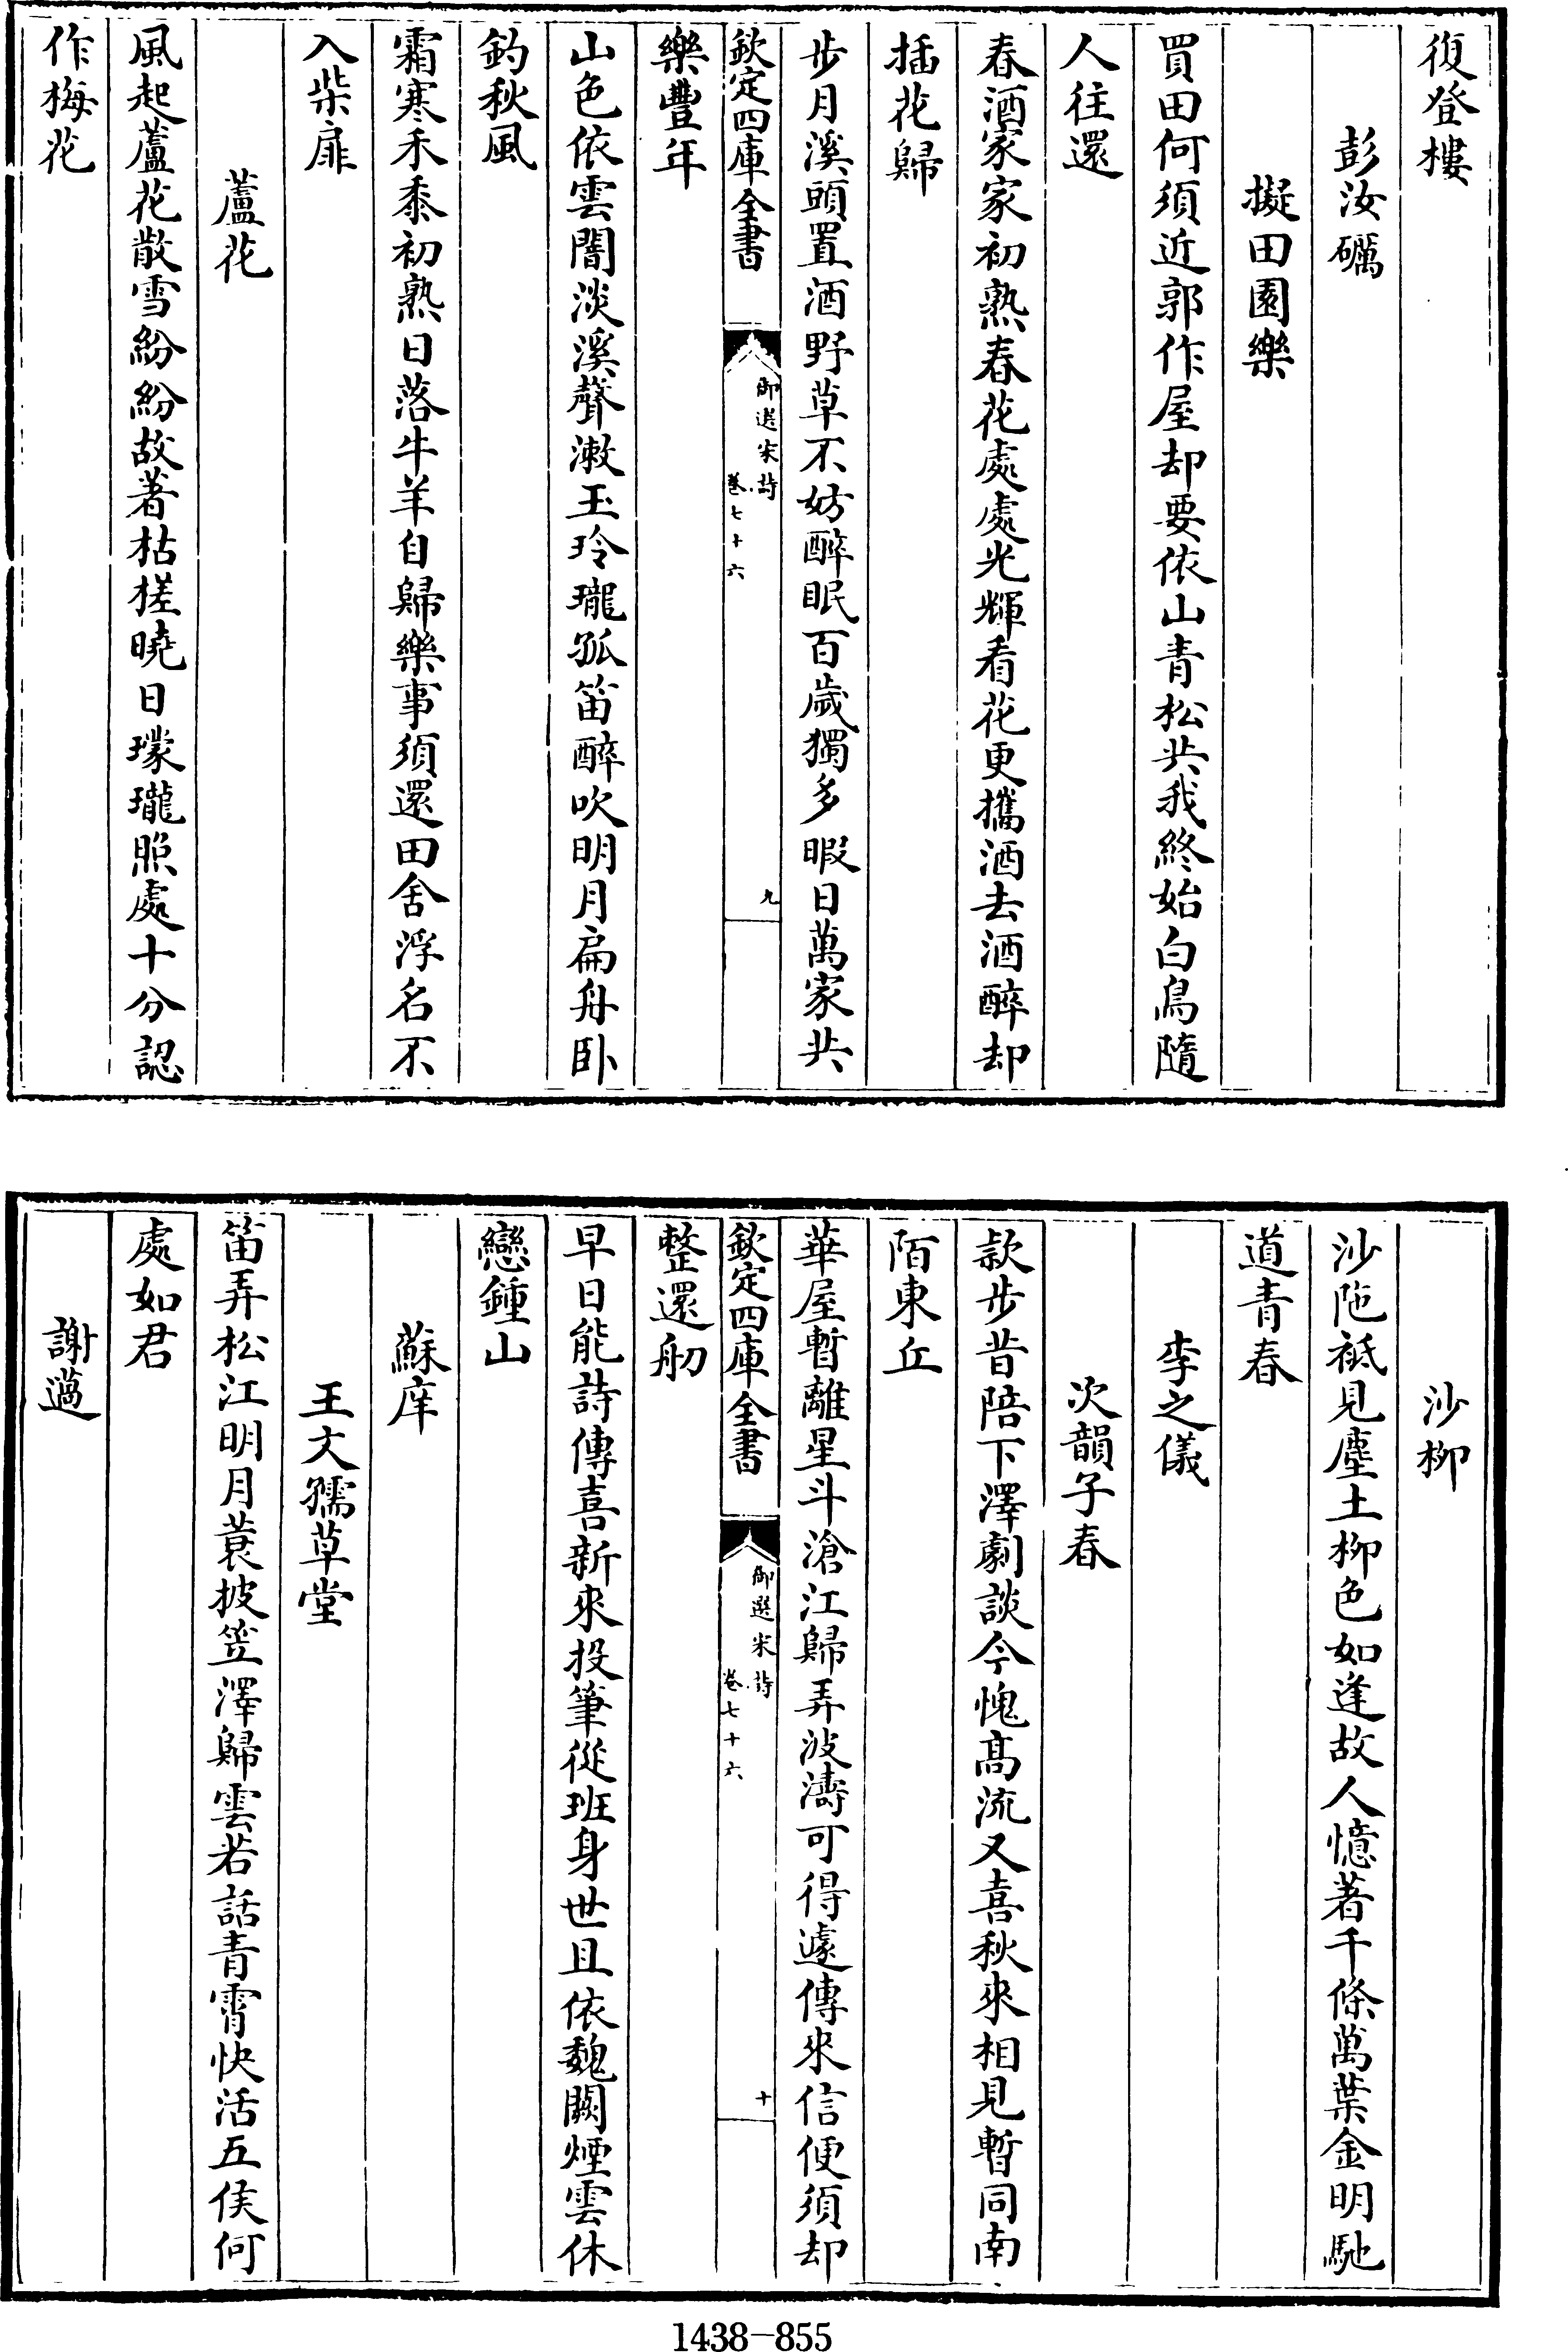 復登樓
彭汝礪
擬田園樂
買田何須近郭作屋却要依山青松共我終始白鳥隨
人往還
春酒家家初熟春花處處光輝看花更攜酒去酒醉却
插花歸
步月溪頭置酒野草不妨醉眠百歲獨多暇日萬家共
欽定四庫全書
御選宋詩
卷七十六
九
樂豐年
山色依雲闇淡溪聲漱玉玲瓏孤笛醉吹明月扁舟卧
釣秋風
霜寒禾黍初熟日落牛羊自歸樂事須還田舍浮名不
入柴扉
蘆花
風起蘆花散雪紛紛故著枯槎曉日璨瓏照處十分認
作梅花
沙柳
沙陁祗見塵土柳色如逢故人憶著千條萬葉金明馳
道青春
李之儀
次韻子春
款步昔陪下澤劇談今愧髙流又喜秋來相見暫同南
陌東丘
華屋暫離星斗滄江歸弄波濤可得遽傳來信便須却
欽定四庫全書
御選宋詩
卷七十六
十
整還舠
早日能詩傳喜新來投筆從班身世且依魏闕煙雲休
戀鍾山
蘇庠
王文孺草堂
笛弄松江明月蓑披笠澤歸雲若話青霄快活五侯何
處如君
謝薖
1438-855